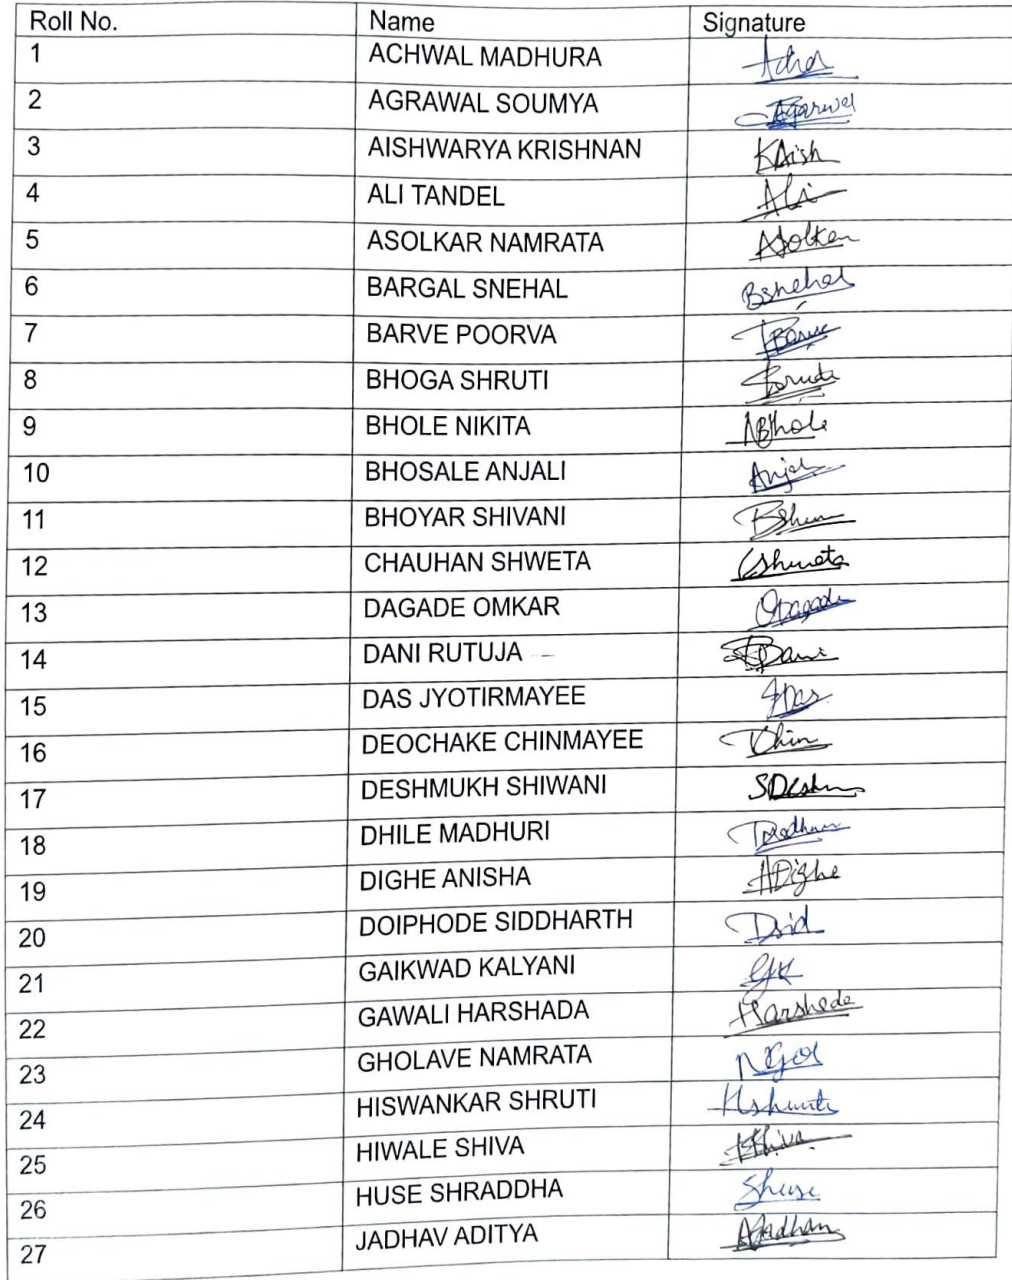 Roll No. Name Signature
1 ACHWAL MADHURA
2 AGRAWAL SOUMYA Agarwal
3 AISHWARYA KRISHNAN KAish
4 ALI TANDEL Ali
5 ASOLKAR NAMRATA
6 BARGAL SNEHAL Bsnehal
7 BARVE POORVA
8 BHOGA SHRUTI
9 BHOLE NIKITA NBhole
10 BHOSALE ANJALI
11 BHOYAR SHIVANI
12 CHAUHAN SHWETA
13 DAGADE OMKAR ODagade
14 DANI RUTUJA
15 DAS JYOTIRMAYEE JDas
16 DEOCHAKE CHINMAYEE
17 DESHMUKH SHIWANI
18 DHILE MADHURI
19 DIGHE ANISHA ADighe
20 DOIPHODE SIDDHARTH Dsid
21 GAIKWAD KALYANI GK
22 GAWALI HARSHADA Harshada
23 GHOLAVE NAMRATA
24 HISWANKAR SHRUTI
25 HIWALE SHIVA
26 HUSE SHRADDHA Shuse
27 JADHAV ADITYA